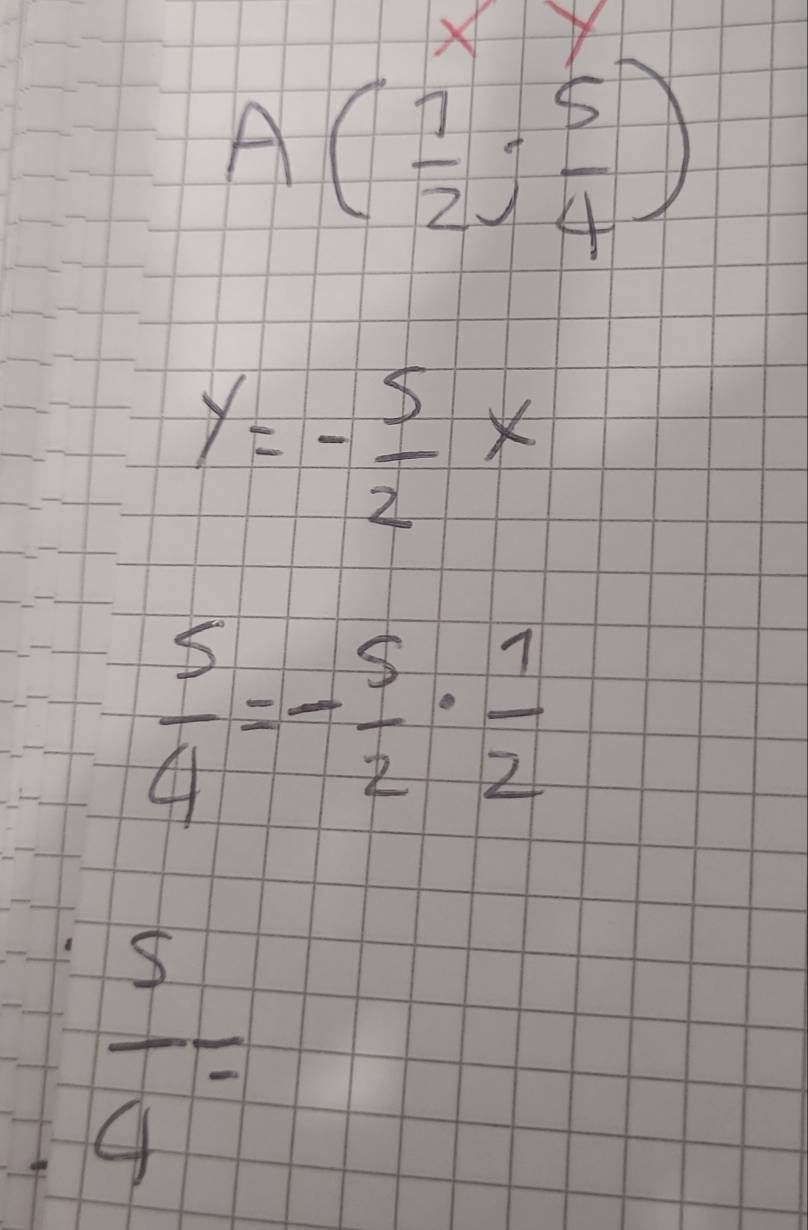 x y
A(1/2; 5/4)
y = - 5/2 x
5/4 = - 5/2 · 1/2
5/4 =